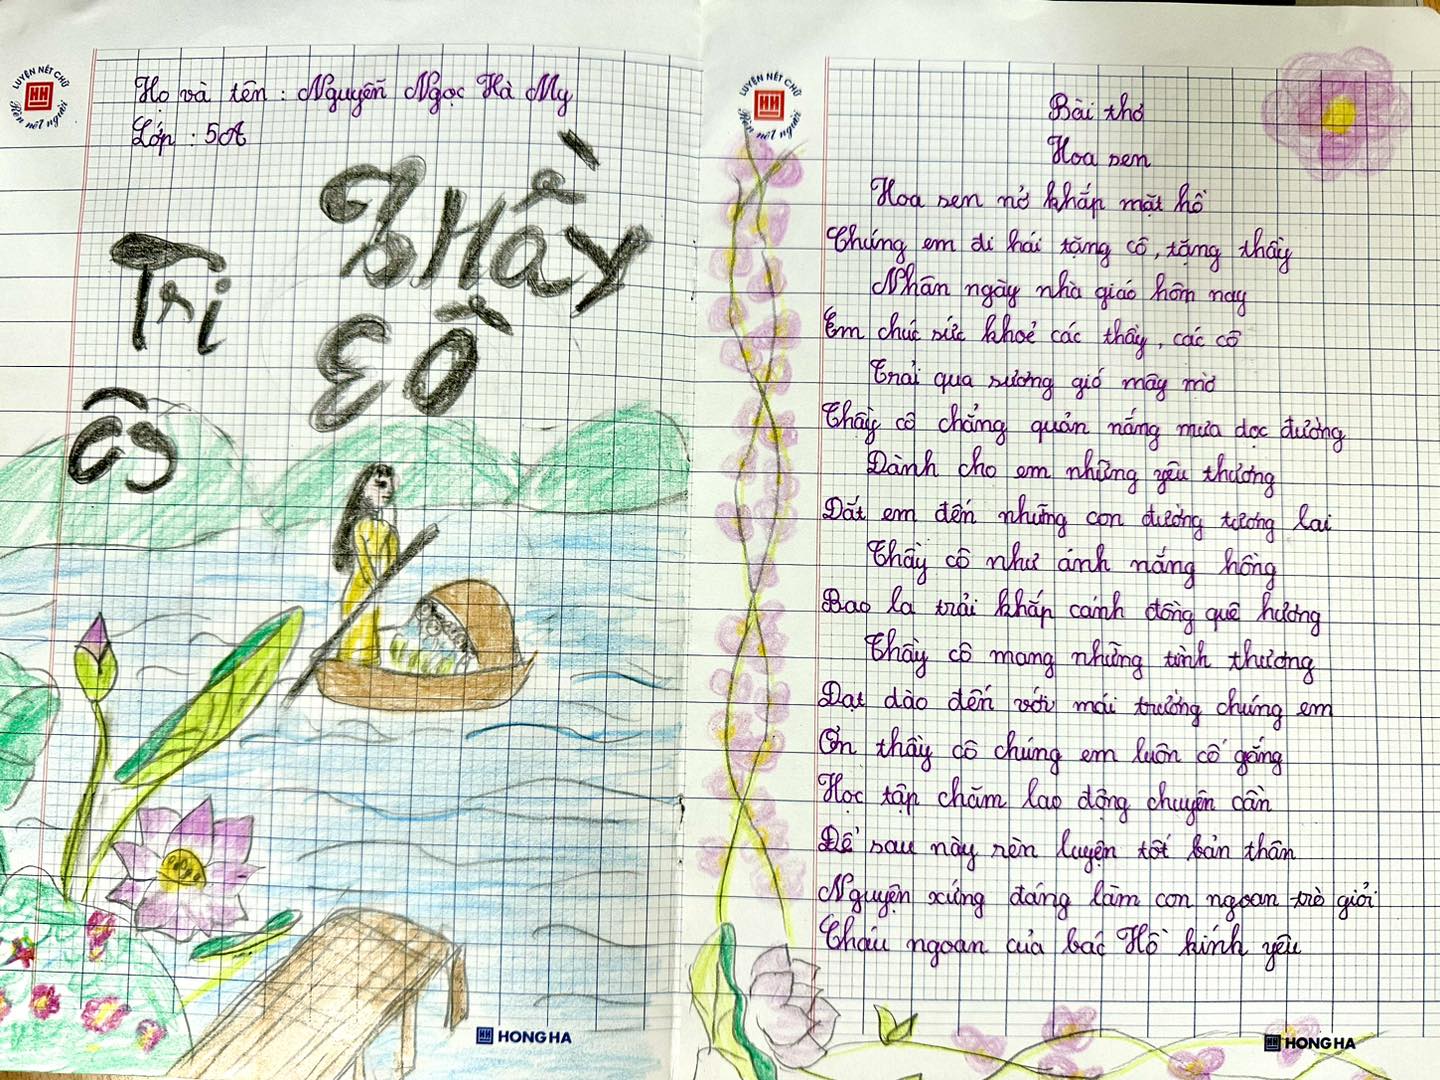 LUYỆN NÉT CHỮ
HH
Rèn nết người
Họ và tên : Nguyễn Ngọc Hà My
Lớp : 5A
Tri
Ân
Thầy
Cô
HH HONG HA
LUYỆN NÉT CHỮ
HH
Rèn nết người
Bài thơ
Hoa sen
Hoa sen nở khắp mặt hồ
Chúng em đi hái tặng cô, tặng thầy
Nhân ngày nhà giáo hôm nay
Em chúc sức khoẻ các thầy, các cô
Trải qua sương gió mây mờ
Thầy cô chẳng quản nắng mưa dọc đường
Dành cho em những yêu thương
Dắt em đến những con đường tương lai
Thầy cô như ánh nắng hồng
Bao la trải khắp cánh đồng quê hương
Thầy cô mang những tình thương
Dạt dào đến với mái trường chúng em
Ơn thầy cô chúng em luôn cố gắng
Học tập chăm lao động chuyên cần
Để sau này rèn luyện tốt bản thân
Nguyện xứng đáng làm con ngoan trò giỏi
Cháu ngoan của bác Hồ kính yêu
HH HONG HA